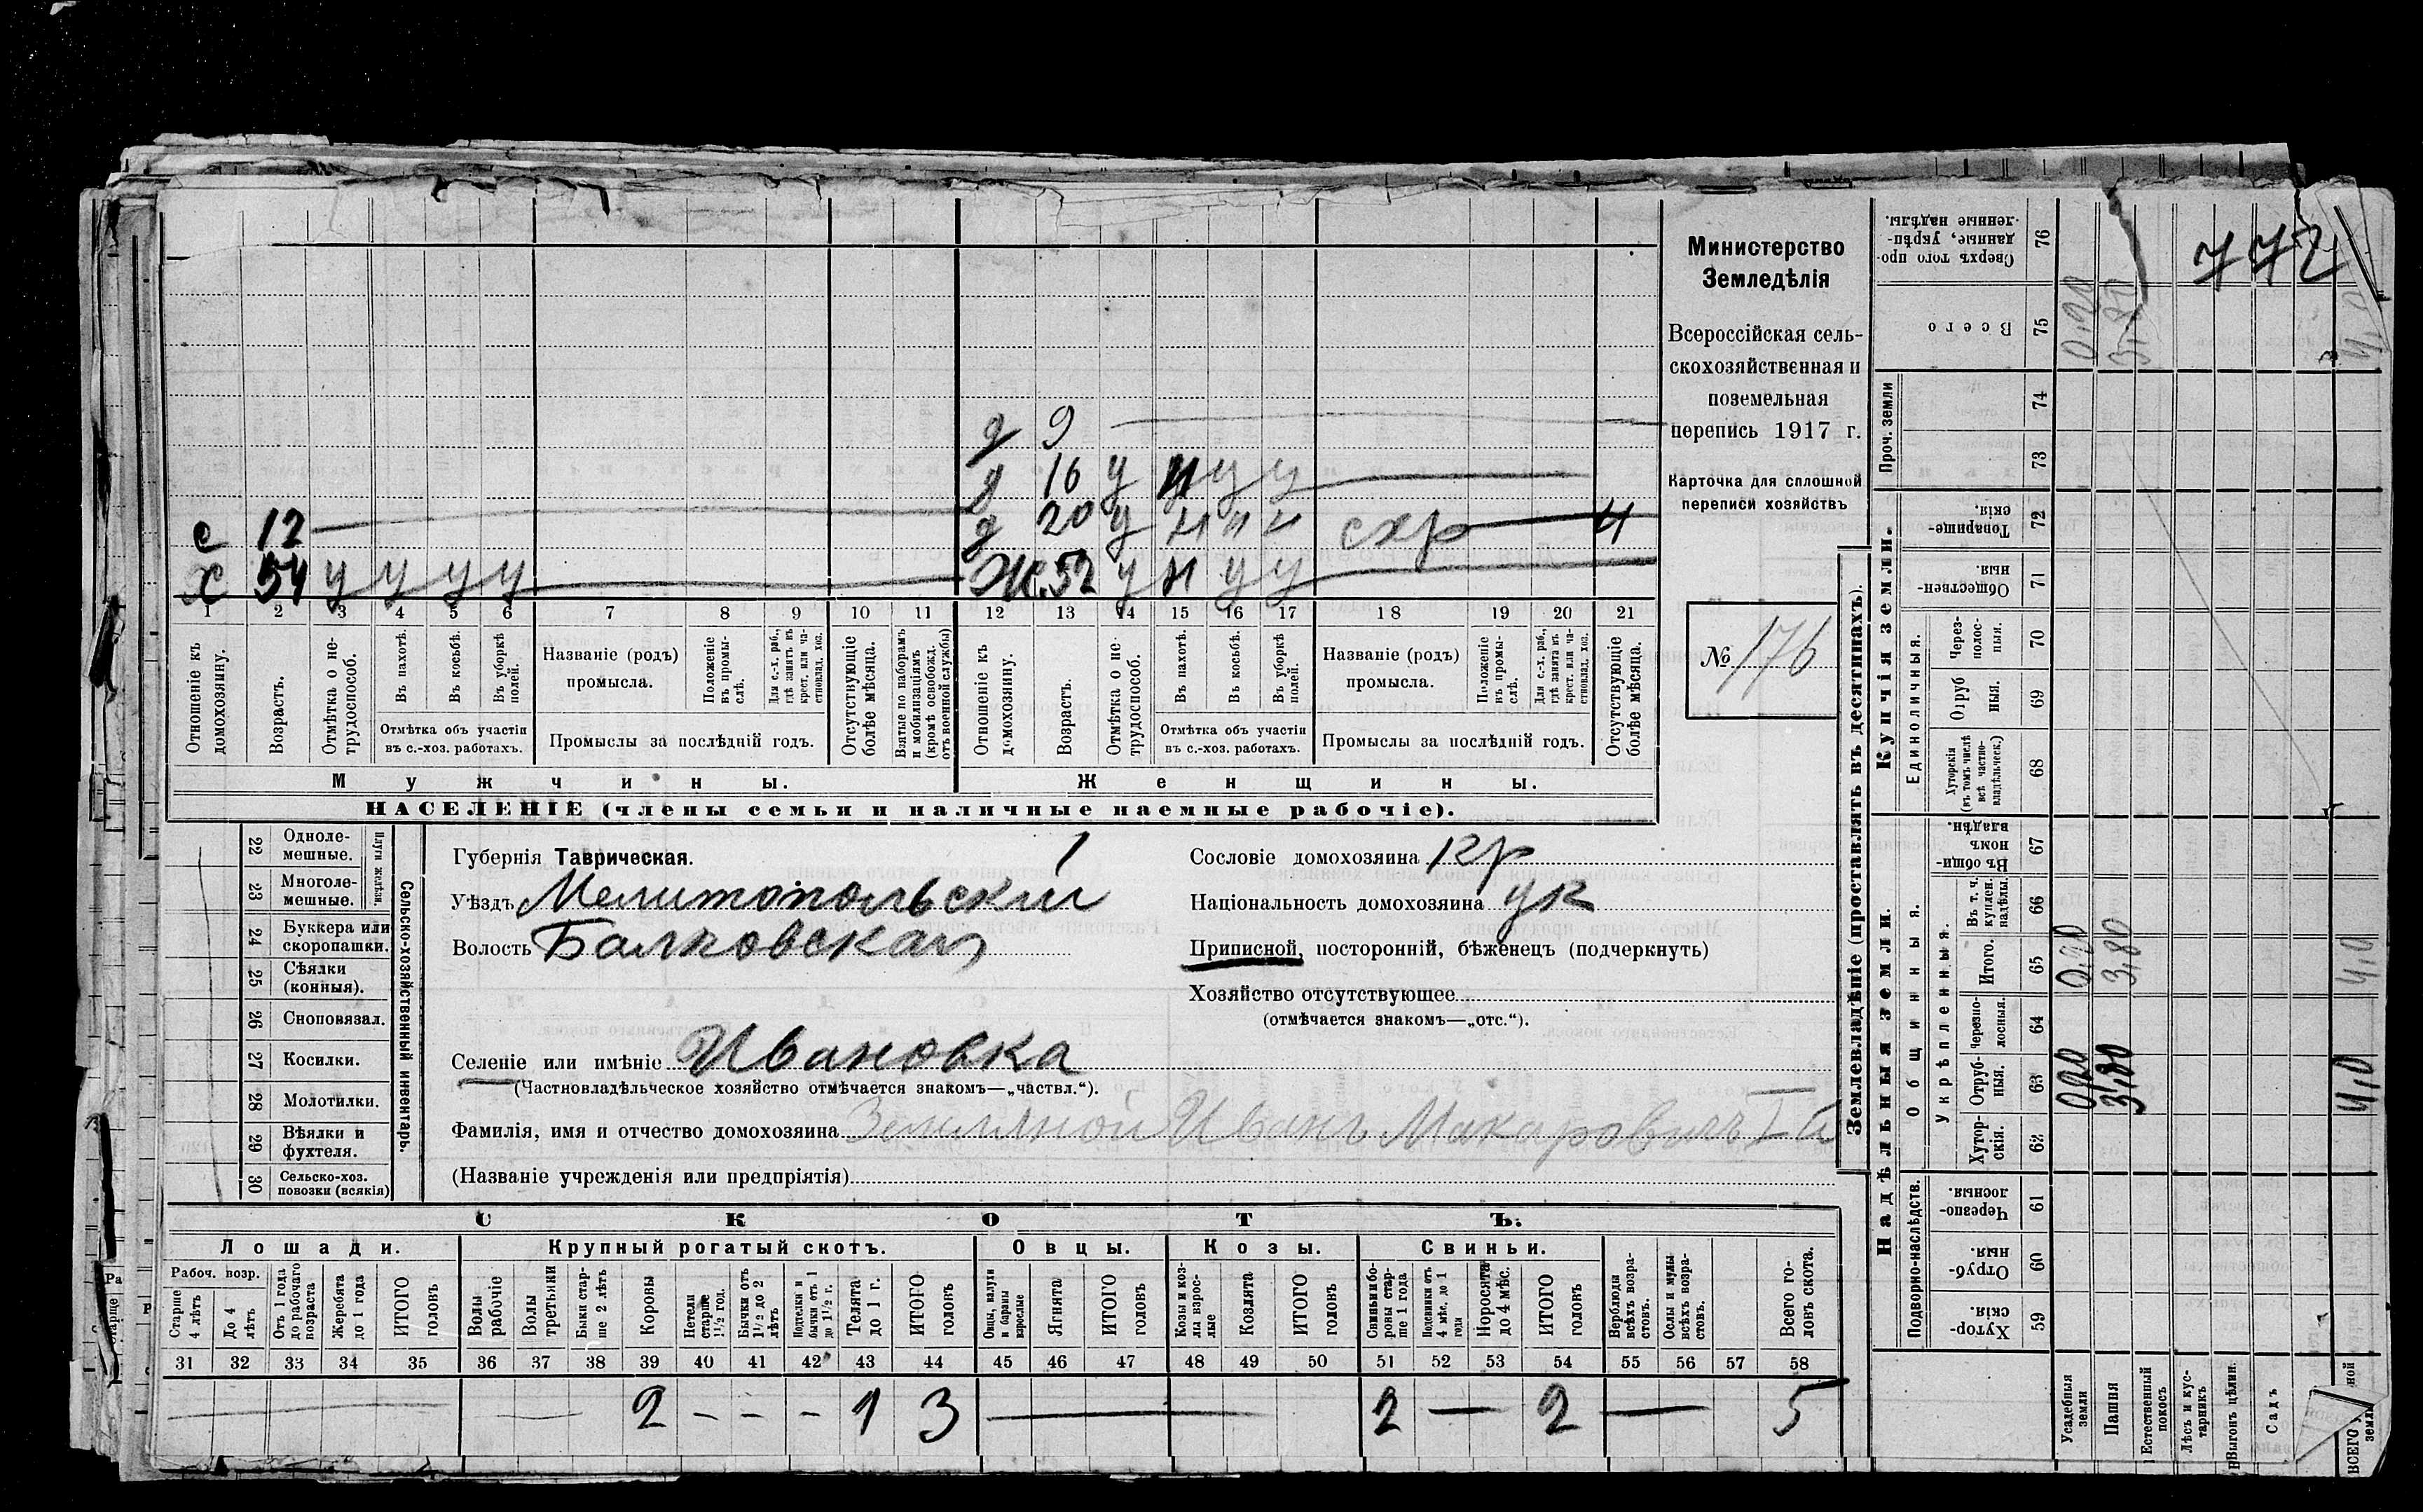 д 9
д 16 у н у у
с 12 д 20 у н н н схр н
х 54 у у у у ж. 52 у н у у
1 2 3 4 5 6 7 8 9 10 11 12 13 14 15 16 17 18 19 20 21
Отношеніе къ домохозяину.
Возрастъ.
Отмѣтка о не-трудоспособ.
Въ пахотѣ.
Въ косьбѣ.
Въ уборкѣ полей.
Отмѣтка объ участіи въ с.-хоз. работахъ.
Названіе (родъ) промысла.
Положеніе въ промы-слѣ.
Для с.-х. раб., гдѣ занятъ въ крест. или ча-стновлад. хоз.
Промыслы за послѣдній годъ.
Отсутствующіе болѣе мѣсяца.
Взятые по наборамъ и мобилизаціямъ (кромѣ освобожд. отъ военной службы)
Отношеніе къ домохозяину.
Возрастъ.
Отмѣтка о не-трудоспособ.
Въ пахотѣ.
Въ косьбѣ.
Въ уборкѣ полей.
Отмѣтка объ участіи въ с.-хоз. работахъ.
Названіе (родъ) промысла.
Положеніе въ промы-слѣ.
Для с.-х. раб., гдѣ занята въ крест. или ча-стновлад. хоз.
Промыслы за послѣдній годъ.
Отсутствующіе болѣе мѣсяца.
Мужчины. Женщины.
НАСЕЛЕНІЕ (члены семьи и наличные наемные рабочіе).
Министерство
Земледѣлія
Всероссійская сель-
скохозяйственная и
поземельная
перепись 1917 г.
Карточка для сплошной
переписи хозяйствъ
№ 176
22 Одноле-мешные.
23 Многоле-мешные.
Плуги желѣзн.
24 Буккера или скоропашки.
25 Сѣялки (конныя).
26 Сноповязал.
27 Косилки.
28 Молотилки.
29 Вѣялки и фухтеля.
30 Сельско-хоз. повозки (всякія)
Сельско-хозяйственный инвентарь.
Губернія Таврическая. 1
Уѣздъ Мелитопольскій
Волость Балковская
Селеніе или имѣніе Ивановка
(Частновладѣльческое хозяйство отмѣчается знакомъ—„частвл.“).
Фамилія, имя и отчество домохозяина Земляной Иванъ Макаровичъ I-й
(Названіе учрежденія или предпріятія)
Сословіе домохозяина кр
Національность домохозяина ук
Приписной, посторонній, бѣженецъ (подчеркнуть)
Хозяйство отсутствующее
(отмѣчается знакомъ—„отс.“).
СКОТЪ.
Лошади. Крупный рогатый скотъ. Овцы. Козы. Свиньи.
Рабоч. возр.
Старше 4 лѣтъ
До 4 лѣтъ
Отъ 1 года до рабочаго возраста
Жеребята до 1 года
ИТОГО головъ
Волы рабочіе
Волы третьяки
Быки стар-ше 2 лѣтъ
Коровы
Нетели старше 1½ год.
Бычки отъ 1½ до 2 лѣтъ
Подтелки и бычки отъ 1 до 1½ г.
Телята до 1 г.
ИТОГО головъ
Овцы, валухи и бараны взрослые
Ягнята
ИТОГО головъ
Козы и коз-лы взрос-лые
Козлята
ИТОГО головъ
Свиньи и бо-ровы стар-ше 1 года
Подсвинки отъ 4 мѣс. до 1 года
Поросята до 4 мѣс.
ИТОГО головъ
Верблюды всѣхъ возра-стовъ.
Ослы и мулы всѣхъ возра-стовъ.
Всего го-ловъ скота.
31 32 33 34 35 36 37 38 39 40 41 42 43 44 45 46 47 48 49 50 51 52 53 54 55 56 57 58
2 - - - 1 3 — 2 — 2 — 5
Землевладѣніе (проставлять въ десятинахъ).
Надѣльныя земли. Купчія земли.
Проч. земли
Подворно-наслѣдств.
Общинныя.
Укрѣпленныя.
Единоличныя.
Сверхъ того про-данные, укрѣп-ленные надѣлы. 76
Всего 75 0,20 3,80 4,0
74
73
Товарище-скія. 72
Обществен-ныя. 71
Через-полос-ныя. 70
Отруб ныя. 69
Хуторскія (въ томъ числѣ всѣ частно-владѣльческ.) 68
Въ общин-номъ владѣн. 67
Въ т. ч. куплен. надѣлы. 66
Итого. 65 0,20 3,80 4,0
Черезпо-лосныя. 64
Отруб-ныя. 63 0,20 3,80 4,0
Хутор-скія. 62
Черезпо-лосныя 61
Отруб-ныя 60
Хутор-скія. 59
772
Усадебныя земли
Пашня
Естественный покосъ
Лѣсъ и кус-тарникъ
Выгонъ цѣлин.
Садъ
ВСЕГО